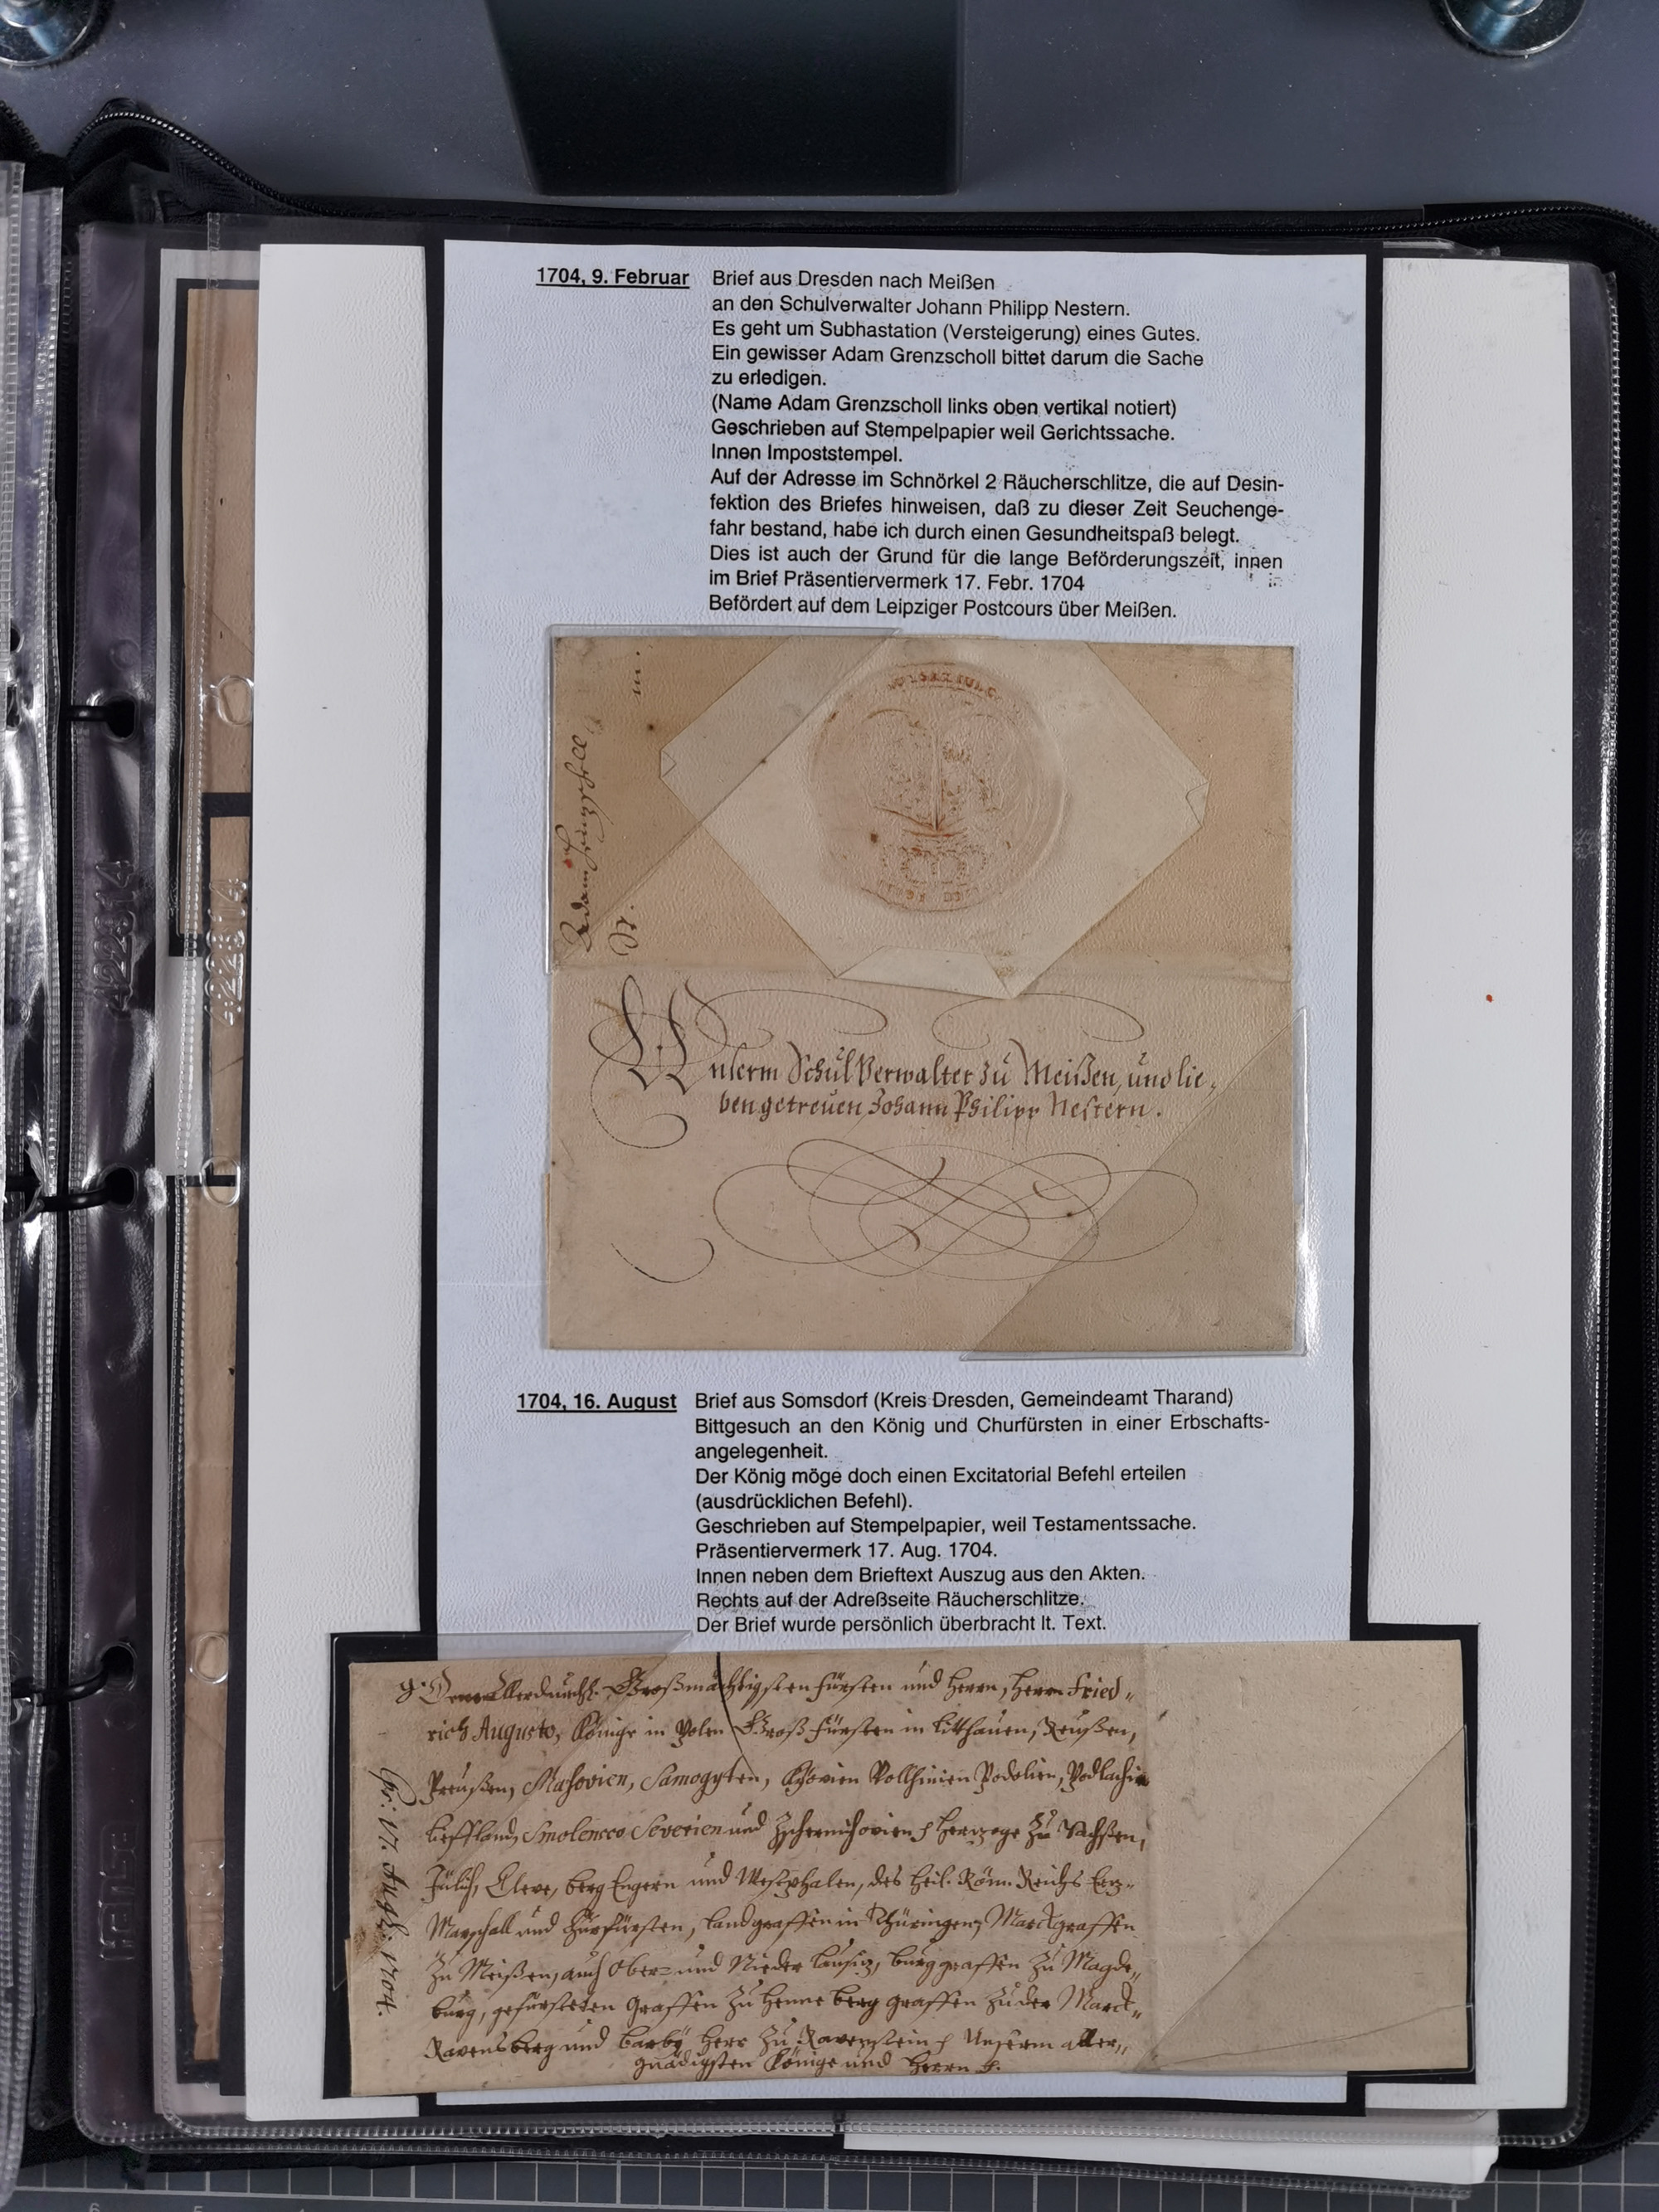 1704, 9. Februar Brief aus Dresden nach Meißen
an den Schulverwalter Johann Philipp Nestern.
Es geht um Subhastation (Versteigerung) eines Gutes.
Ein gewisser Adam Grenzscholl bittet darum die Sache
zu erledigen.
(Name Adam Grenzscholl links oben vertikal notiert)
Geschrieben auf Stempelpapier weil Gerichtssache.
Innen Impoststempel.
Auf der Adresse im Schnörkel 2 Räucherschlitze, die auf Desin-
fektion des Briefes hinweisen, daß zu dieser Zeit Seuchenge-
fahr bestand, habe ich durch einen Gesundheitspaß belegt.
Dies ist auch der Grund für die lange Beförderungszeit, innen
im Brief Präsentiervermerk 17. Febr. 1704
Befördert auf dem Leipziger Postcours über Meißen.
Adam
Unserm Schul Verwalter zu Meißen, und lie-
ben getreuen Johann Philipp Nestern.
1704, 16. August Brief aus Somsdorf (Kreis Dresden, Gemeindeamt Tharand)
Bittgesuch an den König und Churfürsten in einer Erbschafts-
angelegenheit.
Der König möge doch einen Excitatorial Befehl erteilen
(ausdrücklichen Befehl).
Geschrieben auf Stempelpapier, weil Testamentssache.
Präsentiervermerk 17. Aug. 1704.
Innen neben dem Brieftext Auszug aus den Akten.
Rechts auf der Adreßseite Räucherschlitze.
Der Brief wurde persönlich überbracht lt. Text.
Großmächtigsten Fürsten und Herrn, Herrn Fried-
rich Augusto, Könige in Polen Groß Fürsten in Litthauen, Reußen,
Preußen, Masovien, Samogyten, Kyovien Vollhinien Podolien, Podlachien
Lieffland, Smolensco Severien und Zschernichovien Herzoge Zu Sachßen,
Jülich, Cleve, Berg Engern und Westphalen, des Heil. Röm. Reichs Erz-
Marschall und Churfürsten, Landgraffen in Thüringen, Marckgraffen
Zu Meißen, auch Ober- und Nieder Lausiz, Burggraffen Zu Magde-
burg, gefürsteten Graffen Zu Henneberg Graffen Zu der Marck-
Ravensberg und Barby Herr Zu Ravenstein Unserm aller-
gnädigsten Könige und Herrn
17. Aug. 1704.
422814